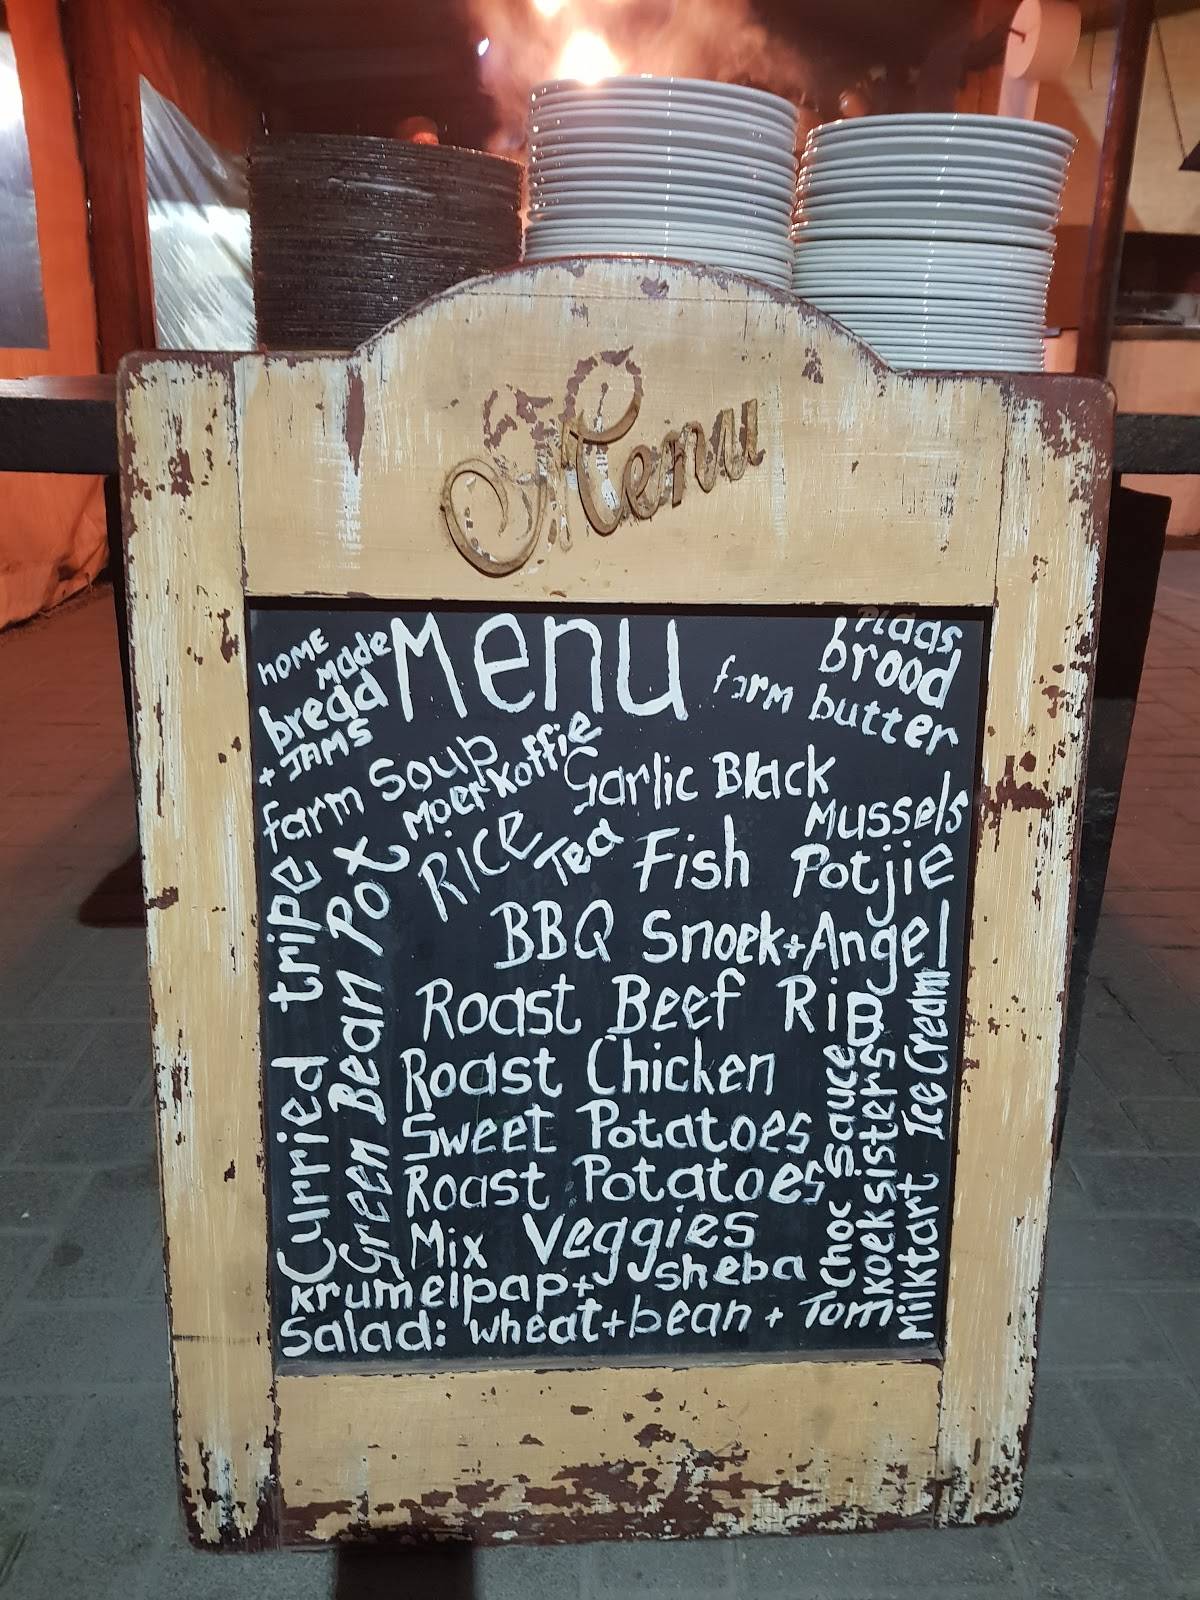 Menu
Menu
home
made
bread
+ JAMS
Plaas
brood
farm butter
farm Soup
Moer Koffie
Rice
Tea
Garlic Black
Mussels
Fish Potjie
BBQ Snoek+Angel
Roast Beef RiB
Roast Chicken
Sweet Potatoes
Roast Potatoes
Mix Veggies
Krumelpap+ sheba
Salad: wheat+bean + Tom
Curried tripe
Green Bean Pot
Choc sauce
koeksisters
Milktart Ice Cream